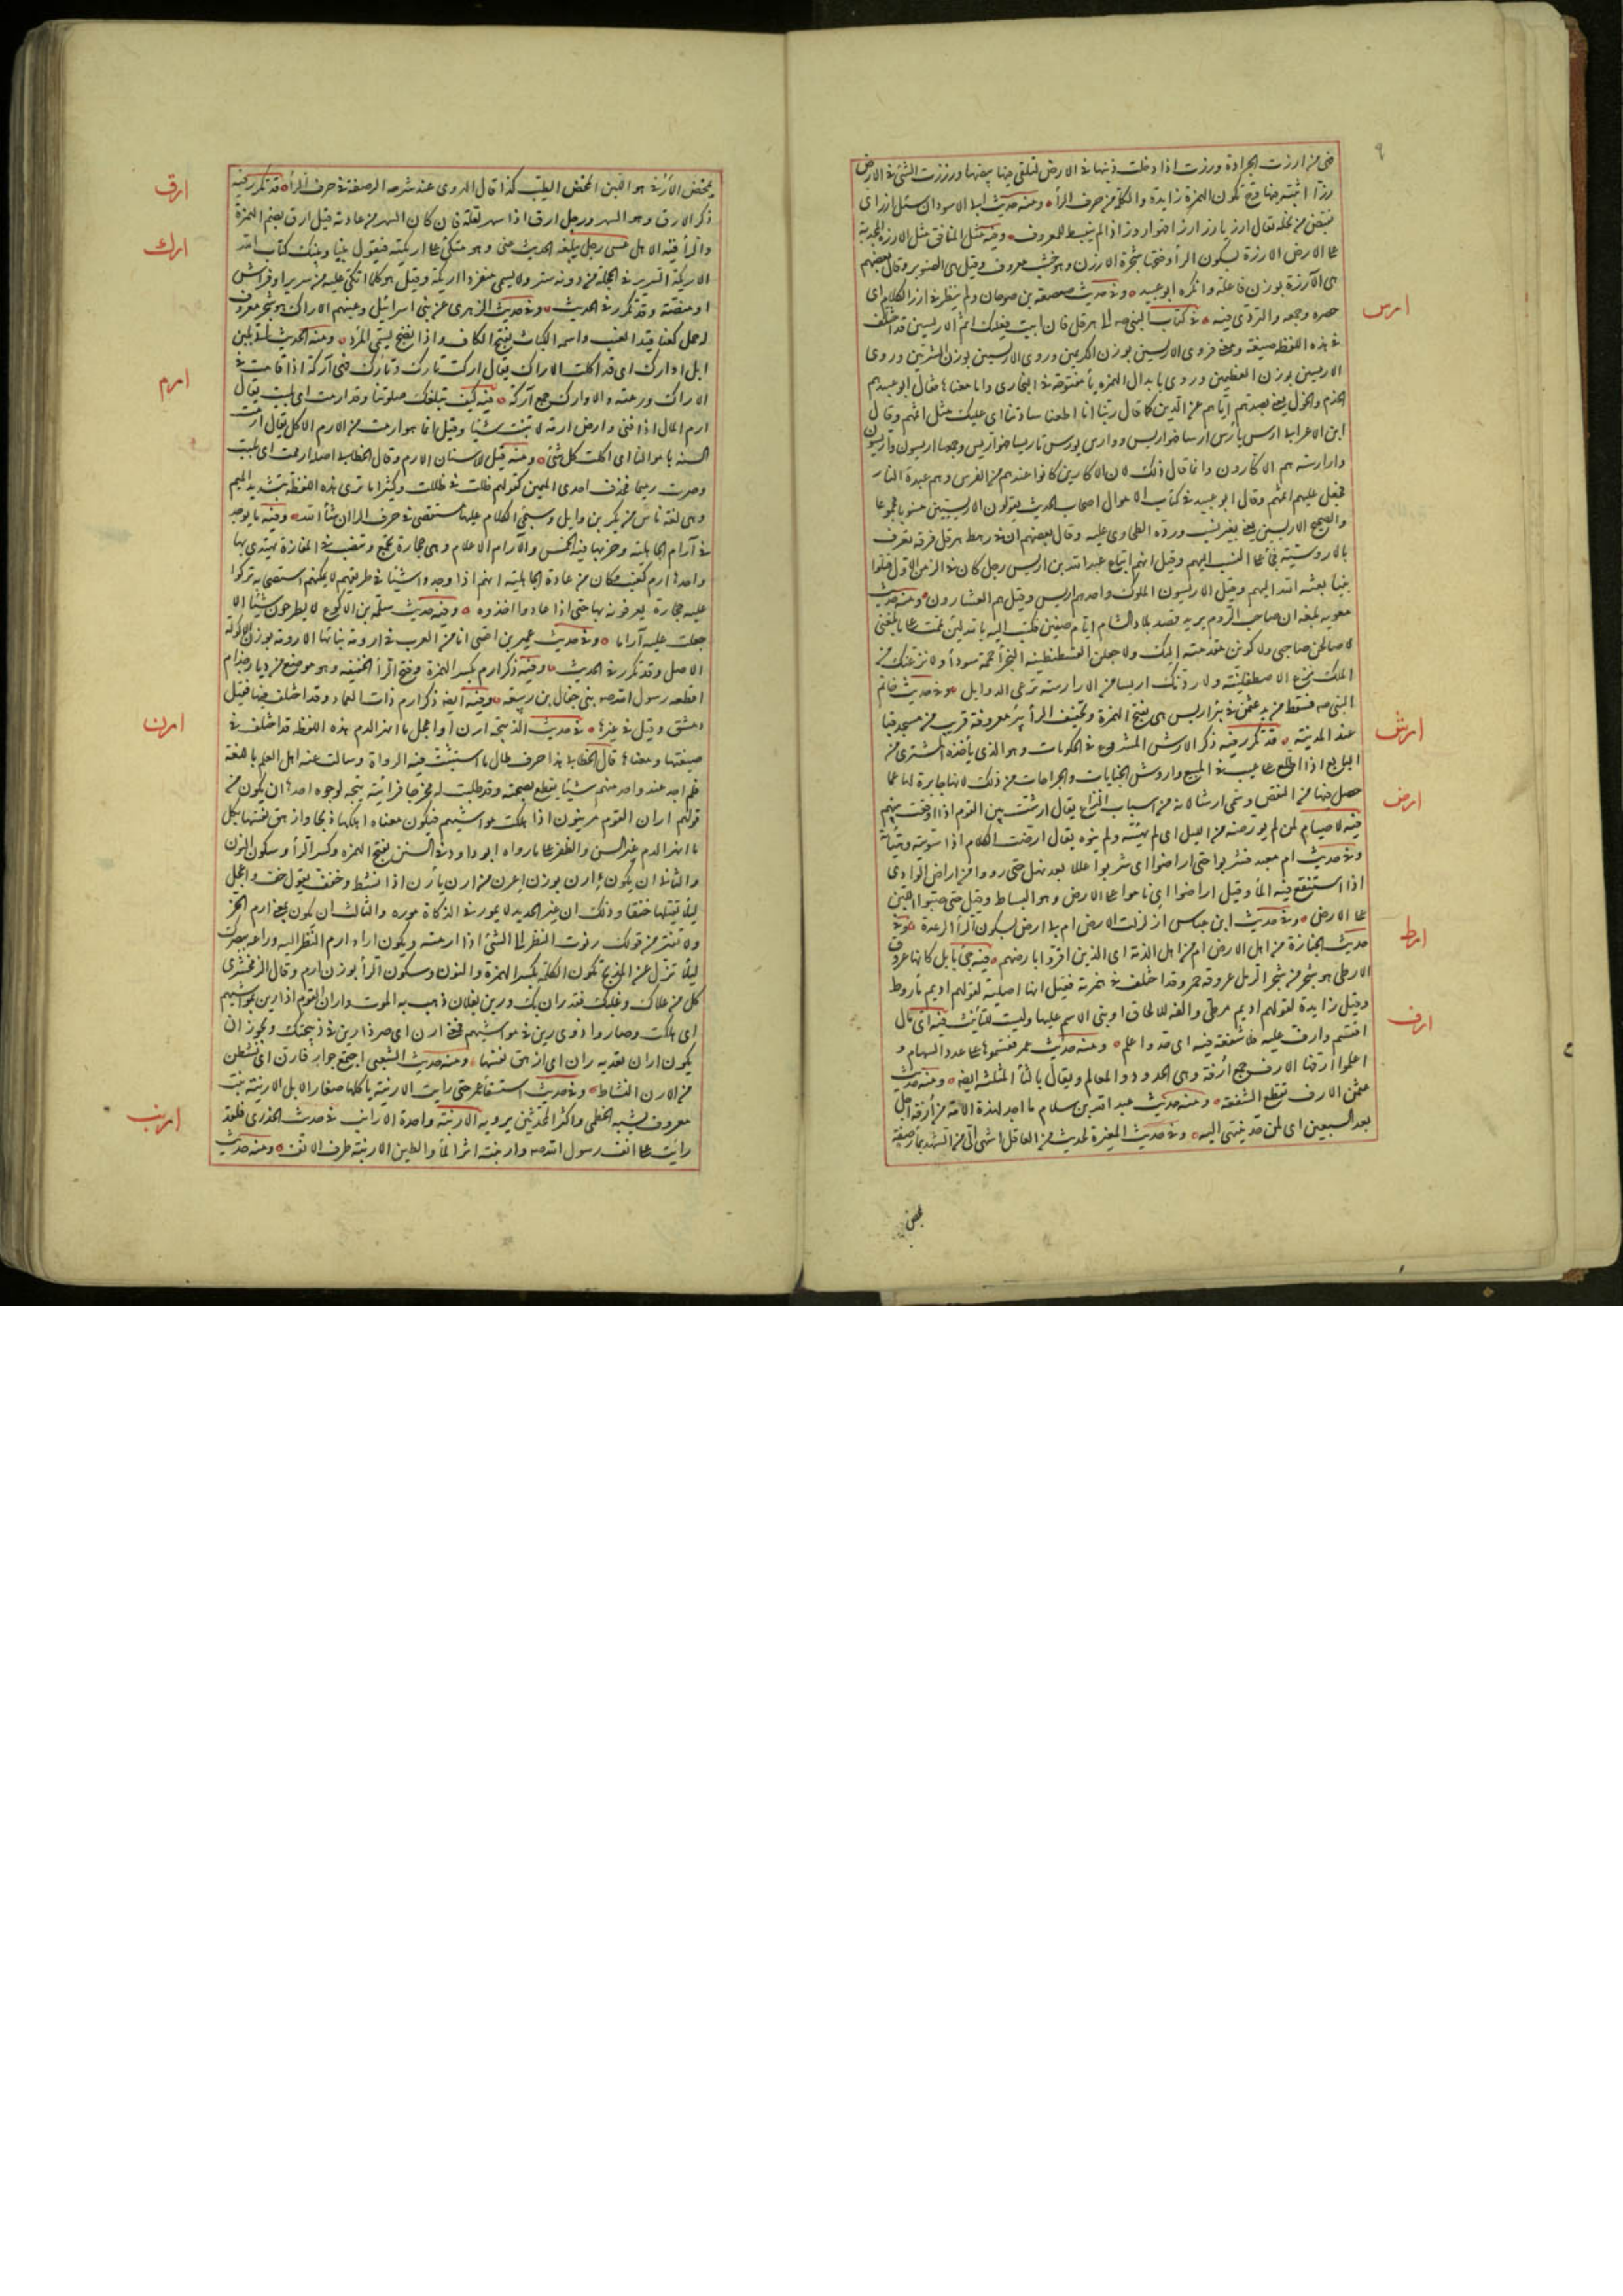 ٩
فهى من ارزت الجرادة ورزت اذا ادخلت ذنبها فى الارض لتلقى فيها بيضها ورززت الشئ فى الارض
رزا اثبته فيها وح تكون الهمزة زايدة والكلمة من حرف الرأ ومنه حديث ابى الاسود ان سئل ارز اى
تقبض من بخله يقال ارز يارز ارزا فهو اروز اذا لم ينبسط للمعروف ومنه مثل المنافق مثل الارزة المجدية
على الارض الارزة بسكون الرأ وفتحها شجرة الارزن وهو خشب معروف وقيل هى الصنوبر وقال بعضهم
هى الآرزة بوزن فاعلة وانكره ابو عبيد وفى حديث صعصعة بن صوحان ولم ينظر فى ارز الكلام اى
ارس
حصره وجمعه والتروى فيه فى كتاب النبى صه الى هرقل فان ابيت فعليك اثم الاريسين قد اختلف
فى هذه اللفظه صيغة ومعنى فروى الاريسين بوزن الكريمين وروى الاريسيين بوزن الشريبين وروى
الاريسيين بوزن العظيميين وروى بابدال الهمزه يأ مفتوحة فى البخارى واما معناها فقال ابو عبيد هم
الخدم والخول يعنى بصدهم اياهم عن الدين كما قال ربنا انا اطعنا سادتنا اى عليك مثل اثمهم وقال
ابن الاعرابى ارس يأرس ارسا فهو اريس وارس يورس تاريسا فهو اريس وجمعها اريسون واريسون
وارارسة هم الاكارون وانما قال ذلك لان الاكارين كانوا عندهم من الفرس وهم عبدة النار
فجعل عليهم اثمهم وقال ابو عبيد فى كتاب الاموال اصحاب الحديث يقولون الاريسيين منسوبا مجموعا
والصحيح الاريسين يعنى بغير نسب ورده الطحاوى عليه وقال بعضهم ان فى رهط هرقل فرقه تعرف
بالاروسية فجأ على النسب اليهم وقيل انهم اتباع عبد الله بن اريس رجل كان فى الزمن الاول قتلوا
نبيا بعثه الله اليهم وقيل الاريسون الملوك واحدهم اريس وقيل هم العشارون ومنه حديث
معويه بلغه ان صاحب الروم يريد قصد بلاد الشام ايام صفين فكتب اليه بالله لئن تممت على ما بلغنى
لاصالحن صاحبى ولاكونن مقدمته اليك ولاجعلن القسطنطينيه البخرأ حممة سودأ ولانزعنك من
الملك نزع الاصطفلينة ولاردنك اريسا من الارارسة ترعى الدوابل وفى حديث خاتم
النبى صه فسقط من يد عثمن فى بئر اريس هى بفتح الهمزة وتخفيف الرأ بئر معروفة قريب من مسجد قبا
ارش
عند المدينة قد تكرر فيه ذكر الارش المشروع فى الحكومات وهو الذى يأخذه المشترى من
البايع اذا اطلع على عيب فى المبيع واروش الجنايات والجراحات من ذلك لانها جابرة لها عما
ارض
حصل فيها من النقص وسمى ارشا لانه من اسباب النزاع يقال ارشت بين القوم اذا اوقعت بينهم
فيه لا صيام لمن لم يورضه من الليل اى لم يهيئه ولم ينوه يقال ارضت الكلام اذا سويته وهيأته
وفى حديث ام معبد فشربوا حتى اراضوا اى شربوا عللا بعد نهل حتى رووا من اراض الوادى
اذا استنقع فيه المأ وقيل اراضوا اى ناموا على الارض وهو البساط وقيل حتى صبوا اللبن
على الارض وفى حديث ابن عباس ازلزلت الارض ام بى ارض بسكون الرأ الرعدة وفى
ارط
حديث الجنازة من اهل الارض ام من اهل الذمة اى الذين اقروا بارضهم فيه جئ بابل كانها عروق
الارطى هو شجر من شجر الرمل عروقه حمر وقد اختلف فى همزته فقيل انها اصلية لقولهم اديم مأروط
وقيل زايدة لقولهم اديم مرطى والفه للالحاق او بنى الاسم عليها وليست للتأنيث فيه اى مال
ارف
اقتسم وارف عليه فلا شفعة فيه اى حد واعلم ومنه حديث عمر فقسموها على عدد السهام و
اعلموا ارفها الارف جمع أرفة وهى الحدود والمعالم ويقال بالثأ المثلثه ايضا ومنه حديث
عثمن الارف تقطع الشفعة ومنه حديث عبد الله بن سلام ما اجد لهذه الامة من أرفة اجل
بعد السبعين اى من حد ينتهى اليه وفى حديث المغيرة لحديث من العاقل اشهى الى من الشهد بمأ رصفة
بمحض
ارق
بمحض الأرفى هو اللبن المحض الطيب كذا قال الهروى عند شرحه الرصفة فى حرف الرأ قد تكرر فيه
ذكر الارق وهو السهر ورجل ارق اذا سهر لعلة فان كان السهر من عادته قيل ارق بضم الهمزة
ارك
والرأ فيه الا هل عسى رجل يبلغه الحديث عنى وهو متكئ على اريكته فيقول بيننا وبينك كتاب الله
الاريكة السرير فى الحجلة من دونه ستر ولا يسمى منفردا اريكة وقيل هو كلما اتكى عليه من سرير او فراش
او منصة وقد تكرر فى الحديث وفى حديث الزهرى عن بنى اسرائيل وعنبهم الاراك هو شجر معروف
له حمل كعناقيد العنب واسمه الكباث بفتح الكاف واذا نضج يسمى المرد ومنه الحديث اتى بلبن
ابل اوارك اى قد اكلت الاراك يقال اركت تارك وتأرك فهى آركة اذا اقامت فى
ارم
الاراك ورعته والاوارك جمع آركه فيه كيف تبلغك صلوتنا وقد ارمت اى بليت يقال
ارم المال اذا فنى وارض ارمة لا تنبت شيئا وقيل انما هو ارمت من الارم الاكل يقال ارمت
السنة باموالنا اى اكلت كل شئ ومنه قيل للاسنان الارم وقال الخطابى اصله ارممت اى بليت
وصرت رميما فحذف احدى الميمين كقولهم ظلت فى ظللت وكثيرا ما تروى هذه اللفظة بتشديد الميم
وهى لغة ناس من بكر بن وايل وسيجئ الكلام عليها مستقصى فى حرف الرا ان شأ الله وفيه ما يوجد
فى آرام الجاهلية وخربها فيه الخمس والآرام الاعلام وهى حجارة تجمع وتنصب فى المفازة يهتدى بها
واحدها ارم كعنب وكان من عادة الجاهلية انهم اذا وجدوا شيئا فى طريقهم لا يمكنهم استصحابه تركوا
عليه حجارة يعرفونه بها حتى اذا عادوا اخذوه ومنه حديث سلمة بن الاكوع لا يطرحون شيئا الا
جعلت عليه آراما وفى حديث عمير بن افصى انا من العرب فى ارومة بنائها الارومة بوزن الاكولة
الاصل وقد تكرر فى الحديث وفيه ذكر ارم بكسر الهمزة وفتح الرأ الخفيفه وهو موضع من ديار جذام
اقطعه رسول الله صه بنى جعال بن ربيعة وفيه ايضا ذكر ارم ذات العماد وقد اختلف فيها فقيل
ارن
دمشق وقيل غيرها فى حديث الذبيحة ارن او اعجل ما انهر الدم هذه اللفظة قد اختلف فى
صيغتها ومعناها قال الخطابى هذا حرف طال ما استثبت فيه الرواة وسالت عنه اهل العلم باللغة
فلم اجد عند واحد منهم شيئا يقطع بصحته وقد طلبت له مخرجا فرأيته يتجه لوجوه احدها ان يكون من
قولهم اران القوم مرينون اذا هلكت مواشيهم فيكون معناه اهلكها ذبحا وازهق نفسها بكل
ما انهر الدم غير السن والظفر على ما رواه ابو داود فى السنن بفتح الهمزه وكسر الرأ وسكون النون
والثانى ان يكون إءرن بوزن إعرن من ارن يأرن اذا نشط وخف يقول خف واعجل
ليلا تقتلها خنقا وذلك ان غير الحديد لا يمور فى الذكاة موره والثالث ان يكون بمعنى ادم الحز
ولا تفتر من قولك رنوت النظر الى الشئ اذا ادمته ويكون اراد ادم النظر اليه وراعه ببصرك
ليلا تزل عن المذبح تكون الكلمة بكسر الهمزة والنون وسكون الرأ بوزن ارم وقال الزمخشرى
كل من علاك وغلبك فقد ران بك ورين بفلان ذهب به الموت واران القوم اذا رين بمواشيهم
اى هلكت وصاروا ذوى رين فى مواشيهم فمعنى ارن اى صر ذا رين فى ذبيحتك ويجوز ان
يكون اران تعديه ران اى ازهق نفسها ومنه حديث الشعبى اجتمع جوار فارن اى نشطن
من الارن النشاط وفى حديث استسقأ عمر حتى رايت الارينة ياكلها صغار الابل الارينة نبت
ارنب
معروف يشبه الخطمى واكثر المحدثين يرويه الارنبة واحدة الارانب فى حديث الخدرى فلقد
رأيت على انف رسول الله صه وارنبته اثر المأ والطين الارنبة طرف الانف ومنه حديث